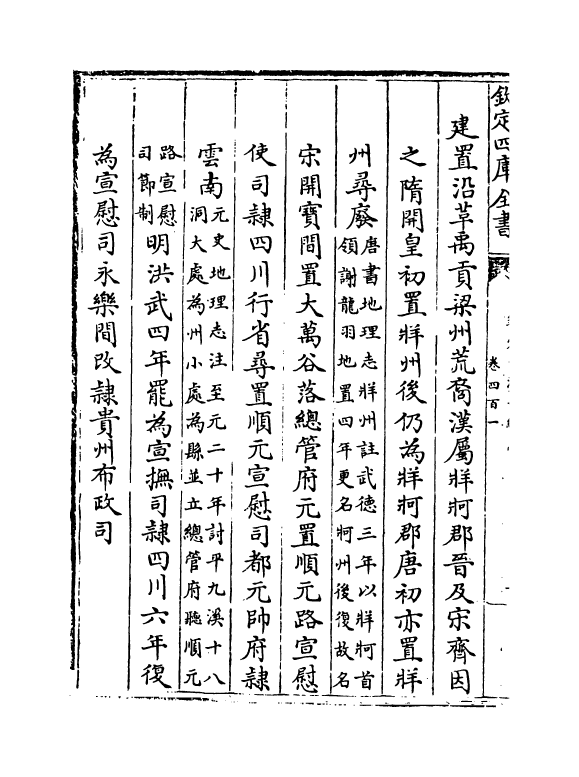 欽定四庫全書
卷四百一
建置沿革禹貢梁州荒裔漢屬牂牁郡晉及宋齊因
之隋開皇初置牂州後仍為牂牁郡唐初亦置牂
州尋廢唐書地理志牂州註武德三年以牂牁首
領謝龍羽地置四年更名牁州後復故名
宋開寶間置大萬谷落總管府元置順元路宣慰
使司隸四川行省尋置順元宣慰司都元帥府隸
雲南元史地理志注至元二十年討平九溪十八
洞大處為州小處為縣並立總管府聽順元
路宣慰
司節制明洪武四年罷為宣撫司隸四川六年復
為宣慰司永樂間改隸貴州布政司